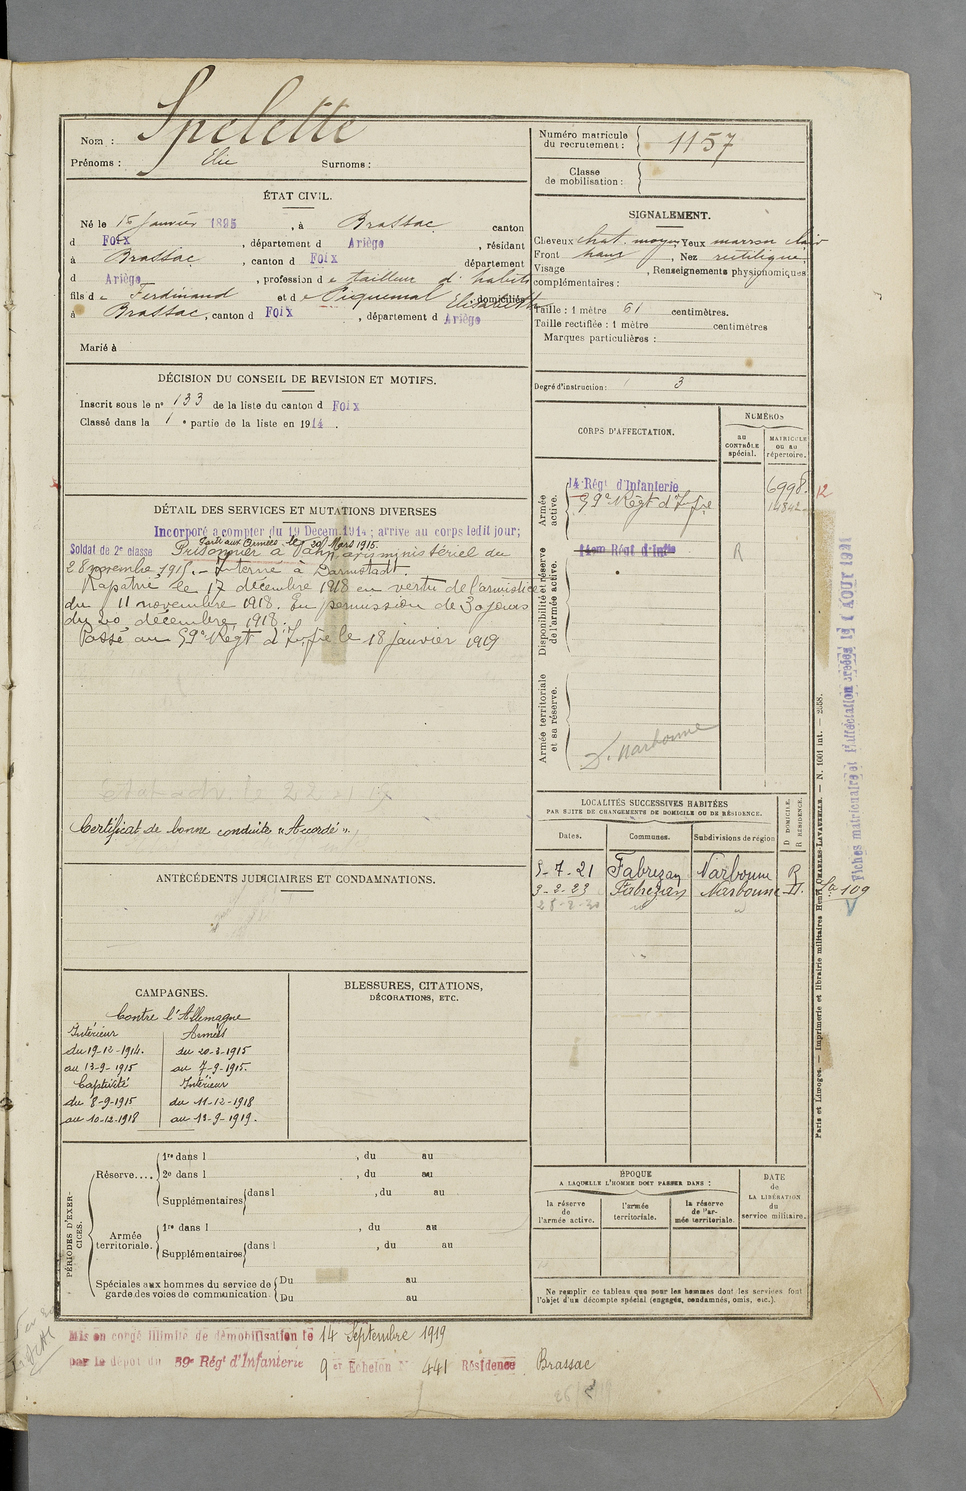 Nom : Spelette
Prénoms : Elie Surnoms :
Numéro matricule du recrutement : 1157
Classe de mobilisation :
ÉTAT CIVIL.
Né le 15 Janvier 1895, à Brassac canton
d Foix, département d Ariège, résidant
à Brassac, canton d Foix département
d Ariège, profession de tailleur d'habits
fils de Ferdinand et de Piquemal Elisabeth domiciliés
à Brassac, canton d Foix, département d Ariège
Marié à
SIGNALEMENT.
Cheveux chat. moyen Yeux marron clair
Front haut, Nez rectiligne
Visage , Renseignements physionomiques
complémentaires :
Taille : 1 mètre 61 centimètres.
Taille rectifiée : 1 mètre centimètres
Marques particulières :
Degré d'instruction : 3
DÉCISION DU CONSEIL DE REVISION ET MOTIFS.
Inscrit sous le n° 133 de la liste du canton d Foix
Classé dans la 1e partie de la liste en 1914.
DÉTAIL DES SERVICES ET MUTATIONS DIVERSES
Incorporé a compter du 19 Decem. 1914 ; arrive au corps ledit jour;
Parti aux Armées le 20 Mars 1915.
Soldat de 2e classe Prisonnier à avis ministériel du
28 novembre 1915. Interné à Darmstadt
Rapatrié le 17 décembre 1918 en vertu de l'armistice
du 11 novembre 1918. En permission de 30 jours
du 20 décembre 1918.
Passé au 59e Régt d'Infrie le 18 Janvier 1919
Certificat de bonne conduite "Accordé".
ANTÉCÉDENTS JUDICIAIRES ET CONDAMNATIONS.
CORPS D'AFFECTATION.
NUMÉROS
au CONTRÔLE spécial.
MATRICULE ou au répertoire.
Armée active.
14 Régt d'Infanterie 6998 12
59e Régt d'Infrie 14842
Disponibilité et réserve de l'armée active.
14em Régt d'Infie R
Armée territoriale et sa réserve.
D. Narbonne
LOCALITÉS SUCCESSIVES HABITÉES
PAR SUITE DE CHANGEMENTS DE DOMICILE OU DE RÉSIDENCE.
Dates. Communes. Subdivisions de région D DOMICILE. R RÉSIDENCE.
5-7-21 Fabrezan Narbonne R
3-2-23 Fabrezan Narbonne D.
109
CAMPAGNES.
Contre l'Allemagne
Intérieur Armées
du 19-12-1914. du 20-3-1915
au 13-9-1915 au 7-9-1915.
Captivité Intérieur
du 8-9-1915 du 11-12-1918
au 10-12-1918 au 13-9-1919.
BLESSURES, CITATIONS,
DÉCORATIONS, ETC.
PÉRIODES D'EXERCICES.
Réserve....
1re dans l , du au
2e dans l , du au
Supplémentaires dans l , du au
Armée territoriale.
1re dans l , du au
Supplémentaires dans l , du au
Spéciales aux hommes du service de garde des voies de communication.
Du au
Du au
ÉPOQUE
A LAQUELLE L'HOMME DOIT PASSER DANS :
la réserve de l'armée active.
l'armée territoriale.
la réserve de l'armée territoriale.
DATE de LA LIBÉRATION du service militaire.
Ne remplir ce tableau que pour les hommes dont les services font
l'objet d'un décompte spécial (engagés, condamnés, omis, etc.).
Mis en congé illimité de démobilisation le 14 Septembre 1919
par le dépôt du 59e Régt d'Infanterie 9er Echelon N° 441 Résidence Brassac
Paris et Limoges. — Imprimerie et librairie militaires Henri CHARLES-LAVAUZELLE. — N. 1001 int. — 2558.
Fiches matriculaire et d'affectation créées le AOUT 1931